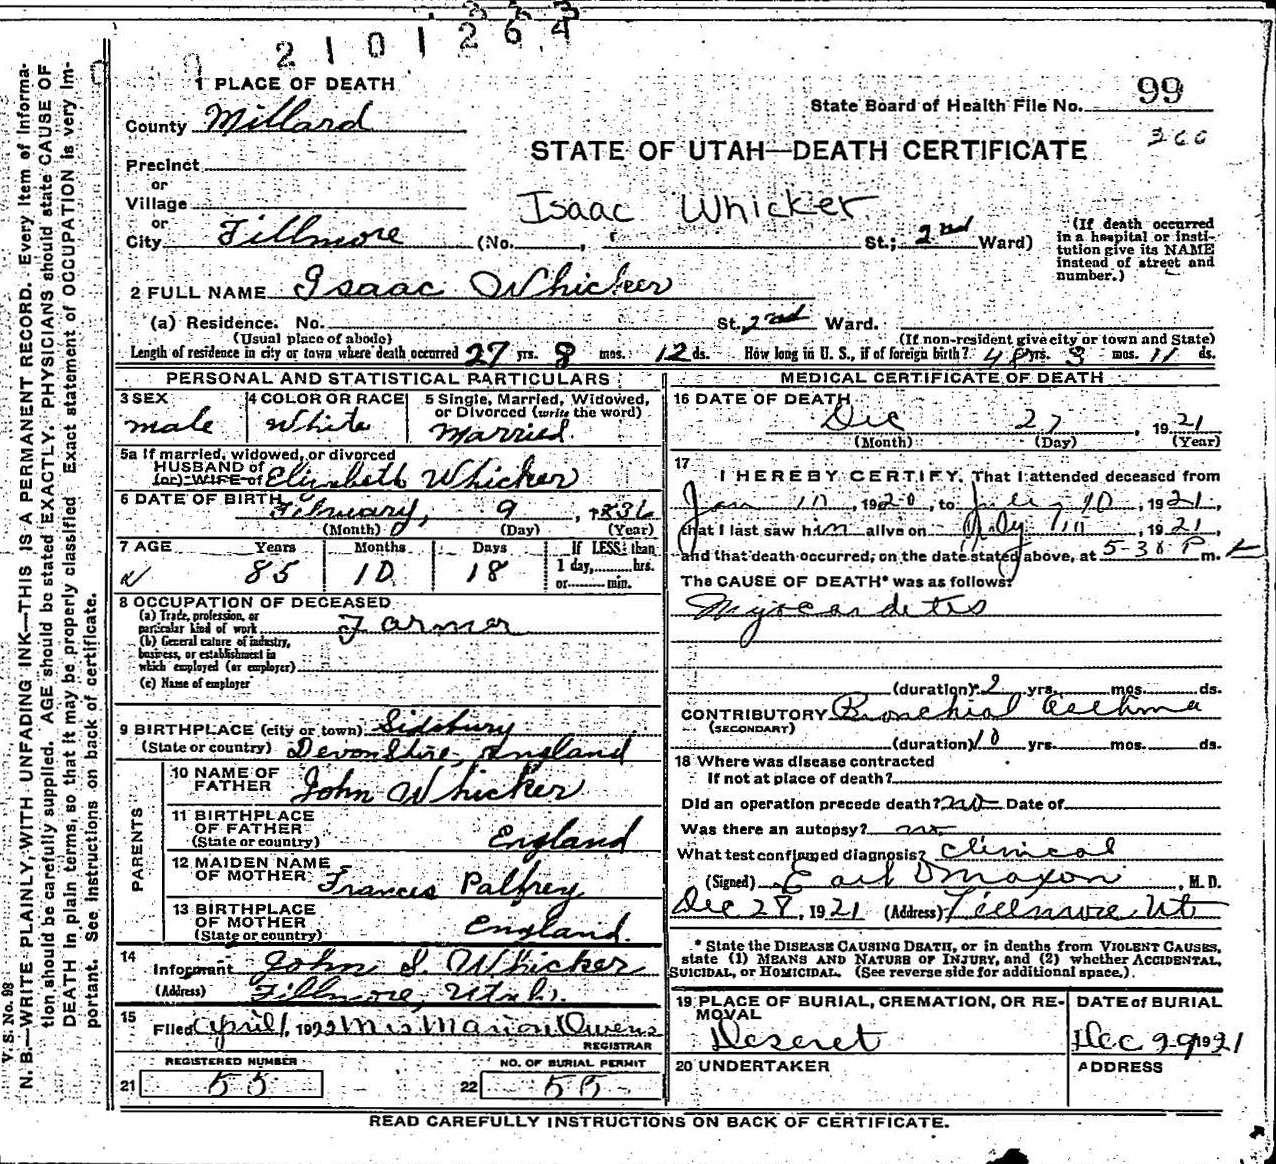 2101264
1 PLACE OF DEATH
State Board of Health File No. 99
County Millard
STATE OF UTAH—DEATH CERTIFICATE
Precinct
or
Village
Isaac Whicker
or
City Fillmore (No. , St.; 2nd Ward)
(If death occurred
in a hospital or insti-
tution give its NAME
instead of street and
number.)
2 FULL NAME Isaac Whicker
(a) Residence. No. St. 2nd Ward.
(Usual place of abode)
(If non-resident give city or town and State)
Length of residence in city or town where death occurred 27 yrs. 8 mos. 12 ds. How long in U. S., if of foreign birth? 48 yrs. 3 mos. 11 ds.
PERSONAL AND STATISTICAL PARTICULARS
3 SEX
male
4 COLOR OR RACE
White
5 Single, Married, Widowed,
or Divorced (write the word)
Married.
5a If married, widowed, or divorced
HUSBAND of
(or) WIFE of Elizabeth Whicker
6 DATE OF BIRTH
February, 9, 1836
(Month) (Day) (Year)
7 AGE Years Months Days If LESS than
1 day,......hrs.
or......min.
85 10 18
8 OCCUPATION OF DECEASED
(a) Trade, profession, or
particular kind of work Farmer
(b) General nature of industry,
business, or establishment in
which employed (or employer)
(c) Name of employer
9 BIRTHPLACE (city or town) Sidsbury
(State or country) Devonshire, England
PARENTS
10 NAME OF
FATHER John Whicker
11 BIRTHPLACE
OF FATHER
(State or country) England
12 MAIDEN NAME
OF MOTHER Frances Palfrey
13 BIRTHPLACE
OF MOTHER
(State or country) England.
14
Informant John S. Whicker
(Address) Fillmore, Utah.
15
Filed April 1, 1922 Mrs Marion Owens
REGISTRAR
REGISTERED NUMBER
21 55
NO. OF BURIAL PERMIT
22 55
MEDICAL CERTIFICATE OF DEATH
16 DATE OF DEATH
Dec 27, 1921
(Month) (Day) (Year)
17
I HEREBY CERTIFY, That I attended deceased from
Jan 10, 1920, to July 10, 1921,
that I last saw him alive on July 10, 1921,
and that death occurred, on the date stated above, at 5-30 P m.
The CAUSE OF DEATH* was as follows:
Myocardetis
(duration) 2 yrs. mos. ds.
CONTRIBUTORY Bronchial Asthma
(SECONDARY)
(duration) 10 yrs. mos. ds.
18 Where was disease contracted
If not at place of death?
Did an operation precede death? no Date of
Was there an autopsy? no
What test confirmed diagnosis? Clinical
(Signed) Earl D Maxon, M. D.
Dec 28, 1921 (Address) Fillmore Ut
* State the DISEASE CAUSING DEATH, or in deaths from VIOLENT CAUSES,
state (1) MEANS AND NATURE OF INJURY, and (2) whether ACCIDENTAL,
SUICIDAL, or HOMICIDAL. (See reverse side for additional space.)
19 PLACE OF BURIAL, CREMATION, OR RE-
MOVAL
Deseret
DATE of BURIAL
Dec 29 1921
20 UNDERTAKER
ADDRESS
READ CAREFULLY INSTRUCTIONS ON BACK OF CERTIFICATE.
V. S. No. 98
N. B.—WRITE PLAINLY, WITH UNFADING INK—THIS IS A PERMANENT RECORD. Every item of informa-
tion should be carefully supplied. AGE should be stated EXACTLY. PHYSICIANS should state CAUSE OF
DEATH in plain terms, so that it may be properly classified. Exact statement of OCCUPATION is very im-
portant. See instructions on back of certificate.